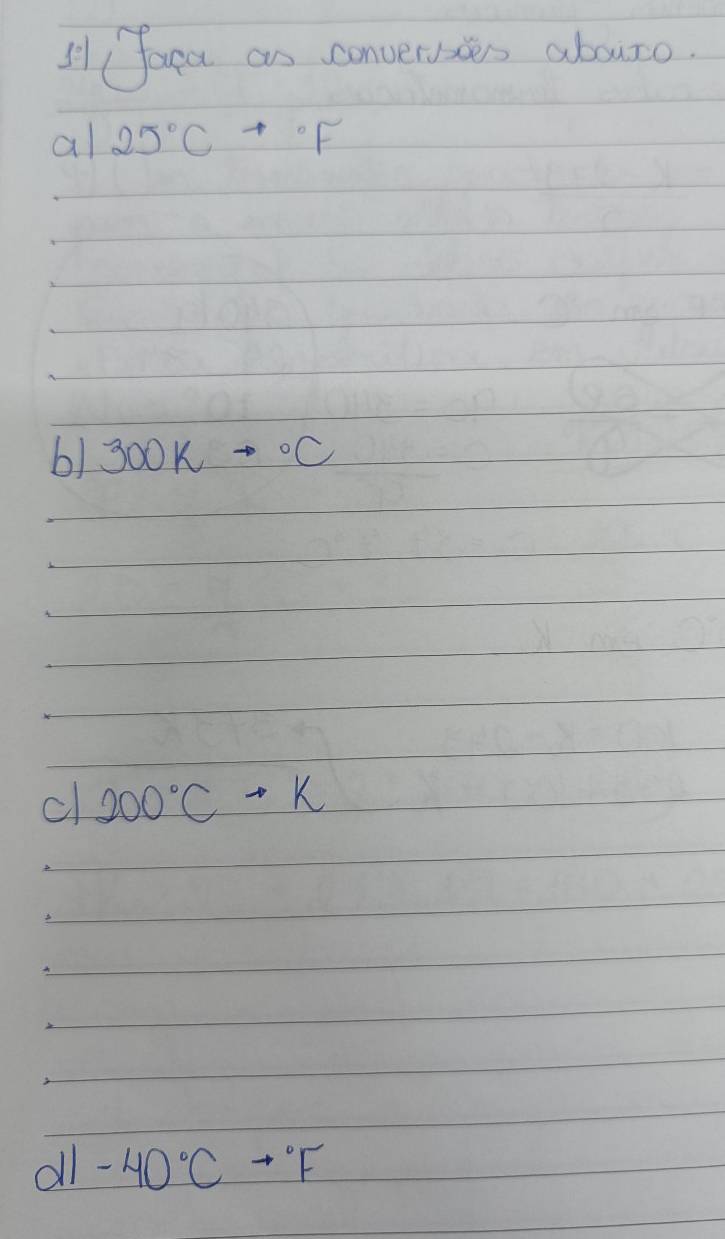 1º) Faça as conversões abaixo.
a) 25°C → °F
b) 300K → °C
c) 200°C → K
d) -40°C → °F